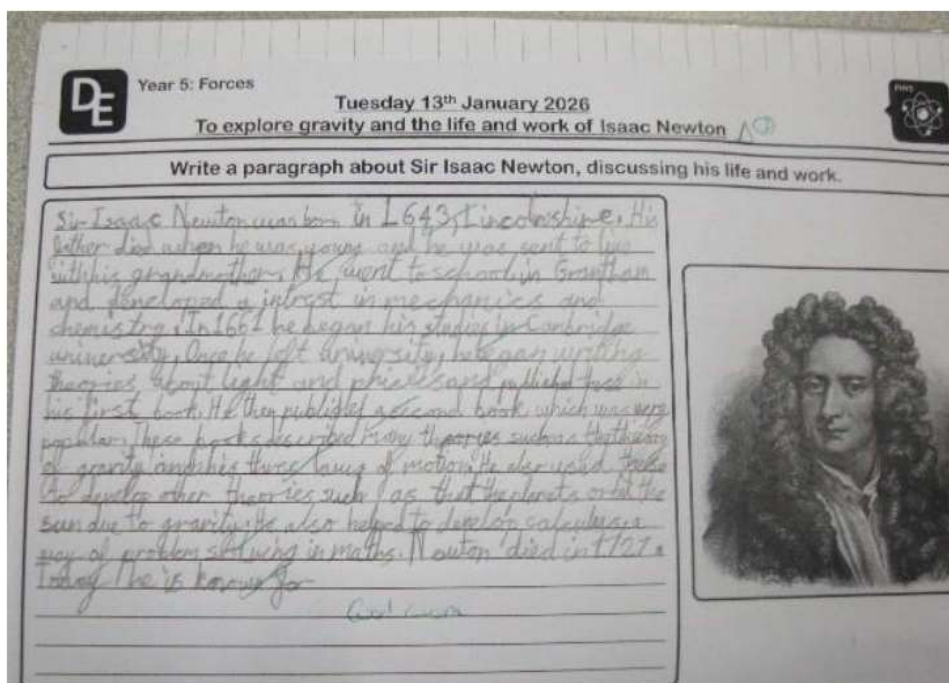 DE
Year 5: Forces
Tuesday 13th January 2026
To explore gravity and the life and work of Isaac Newton
Write a paragraph about Sir Isaac Newton, discussing his life and work.
Sir Isaac Newton was born in 1643, Lincolnshire. His
father died when he was young and he was sent to live
with his grandmother. He went to school in Grantham
and developed a intrest in mechanics and
chemistry. In 1661 he began his studies in Cambridge
university. Once he left university, he began writing
theories about light and and published in
his first book. He then a second book which was very
popular. These books described many theories such as
of gravity and his three laws of motion. He also used these
to develop other theories such as that the planets orbit the
sun due to gravity. He also helped to develop calculus a
way of problem in maths. Newton died in 1727.
Today he is known for